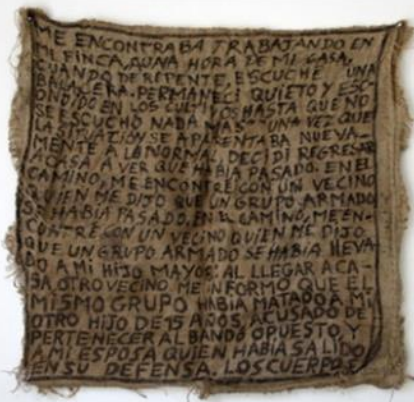 ME ENCONTRABA TRABAJANDO EN
MI FINCA, A UNA HORA DE MI CASA,
CUANDO DE REPENTE, ESCUCHÉ UNA
BALACERA. PERMANECÍ QUIETO Y ESC-
ONDIDO EN LOS CULTIVOS HASTA QUE NO
SE ESCUCHO NADA MAS. UNA VEZ QUE
LA SITUATION SE APARENTABA NUEVA-
MENTE A LO NORMAL, DECIDI REGRESAR
A CASA A VER QUE HABIA PASADO. EN EL
CAMINO, ME ENCONTRE CON UN VECINO
QUIEN ME DIJO QUE UN GRUPO ARMADO
SE HABIA PASADO. EN EL CAMINO, ME EN-
CONTRE CON UN VECINO QUIEN ME DIJO
QUE UN GRUPO ARMADO SE HABIA LLEVA-
DO A MI HIJO MAYOR. AL LLEGAR A CA-
SA OTRO VECINO ME INFORMO QUE EL
MISMO GRUPO HABIA MATADO A MI
OTRO HIJO DE 15 AÑOS, ACUSADO DE
PERTENECER AL BANDO OPUESTO, Y
A MI ESPOSA QUIEN HABIA SALIDO
EN SU DEFENSA. LOS CUERPOS